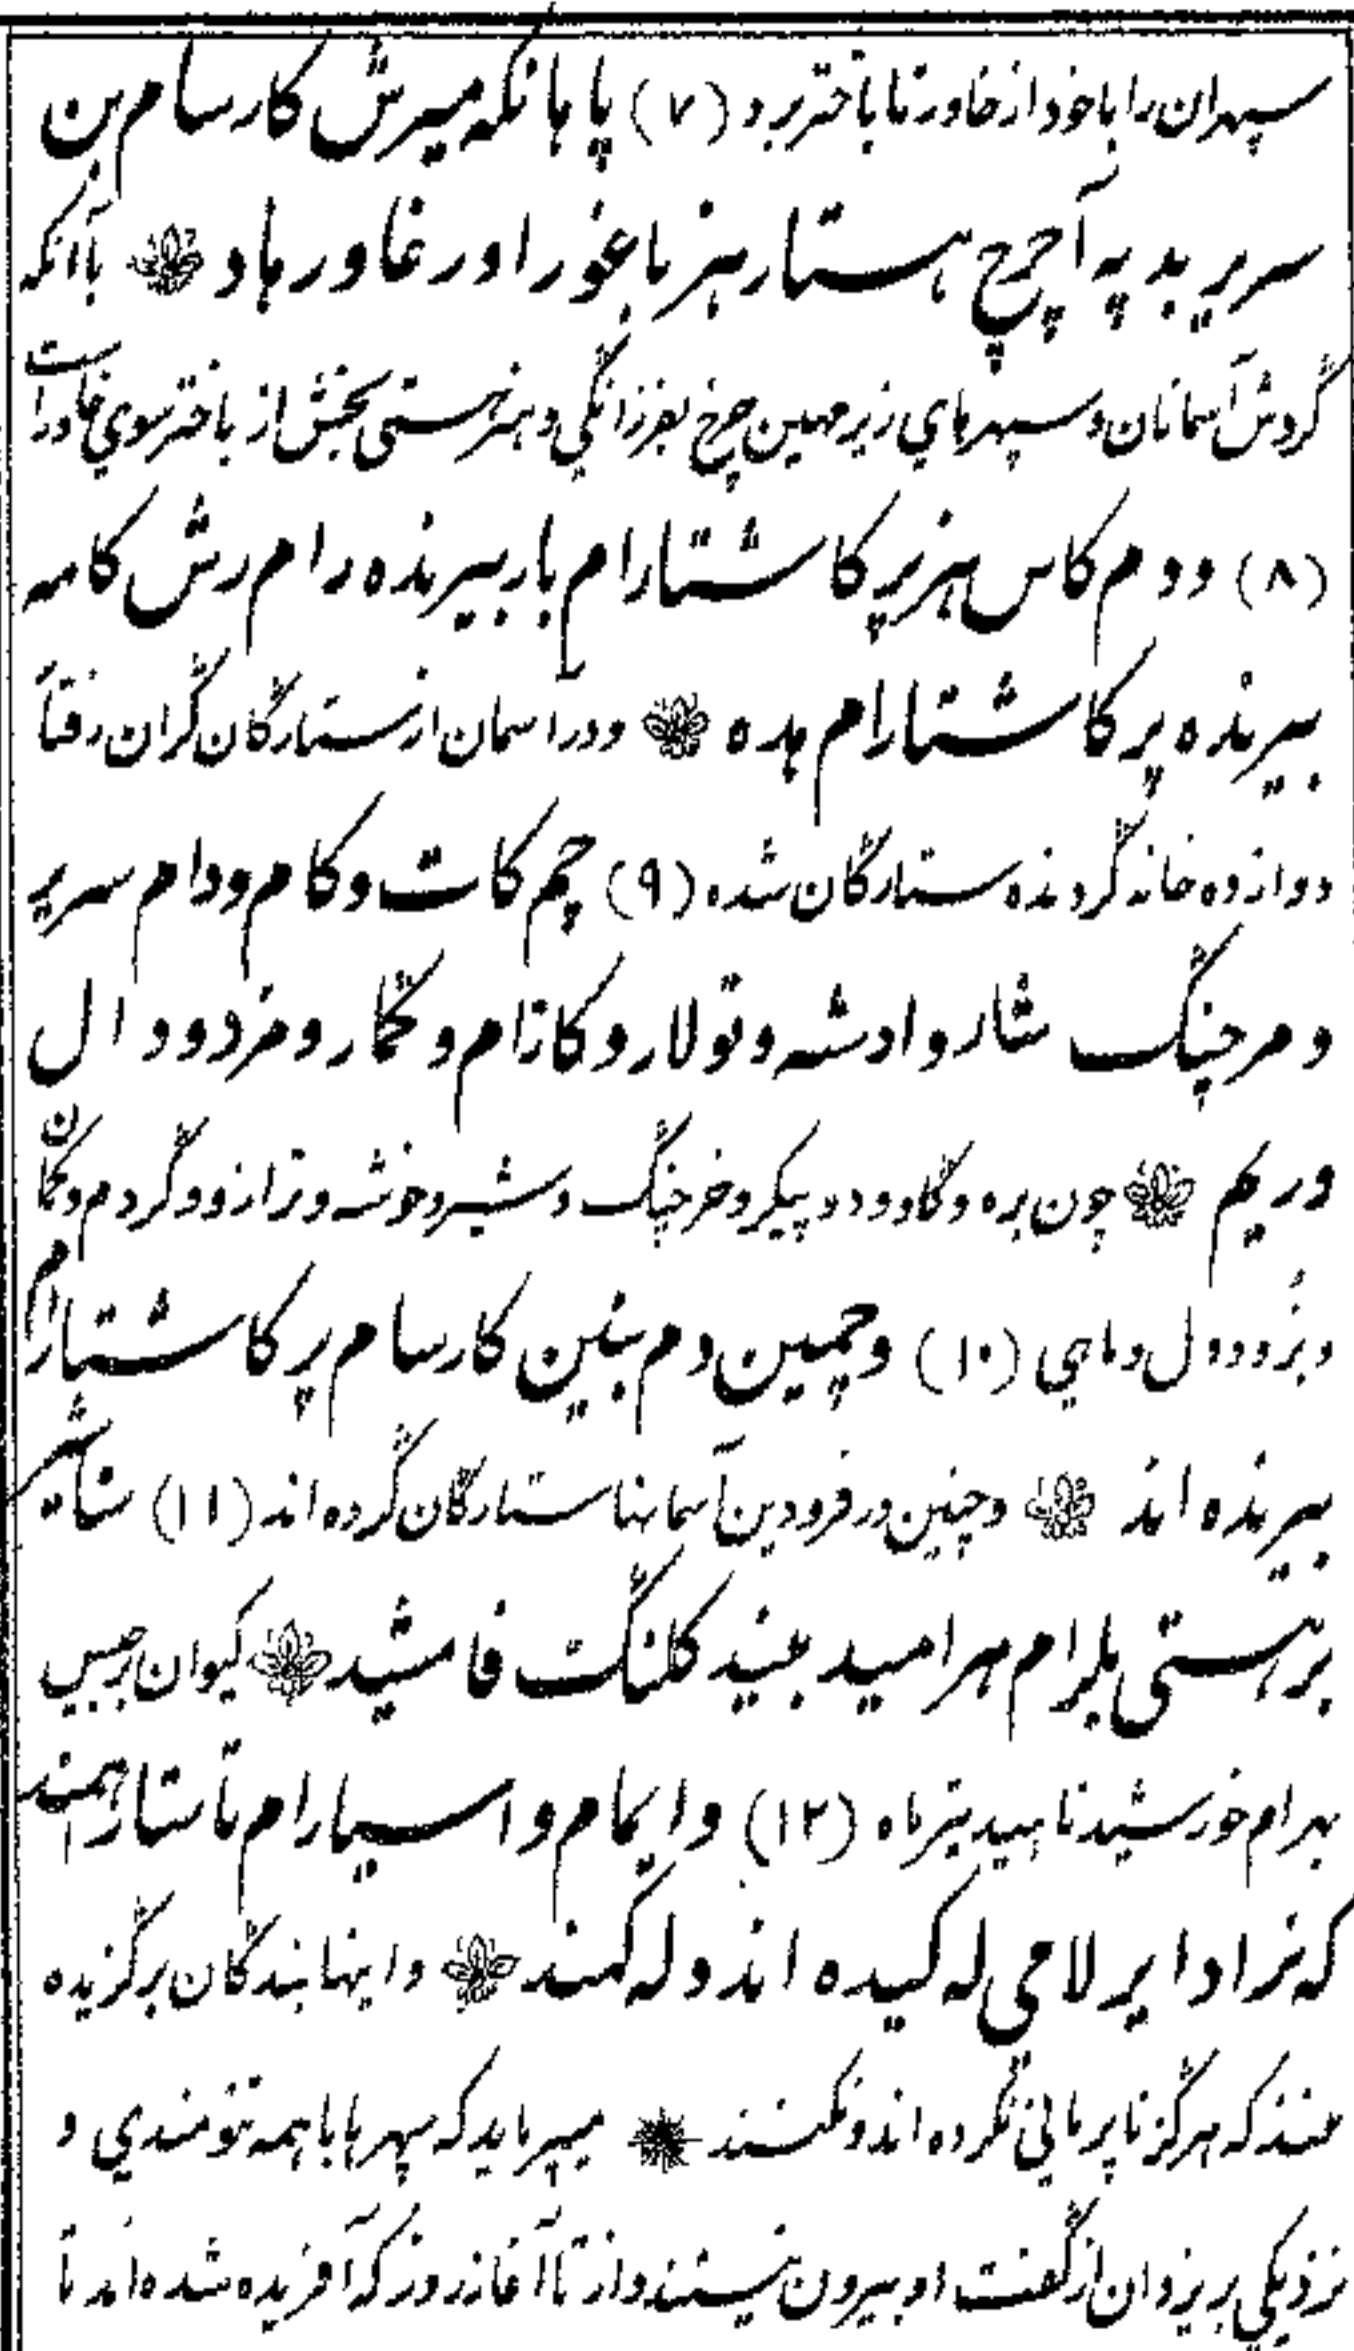 سپهران را با خود از خاور تا باختر برد (۷) پا بانکه میرش کارسام بن
سریر بد په آچرخ هستار هنر باغور اور غاور هاد باآنکه
گردش آسمانان و سپهرهاي زیر مهین چرخ بفرزانگي و هنر هستي بخش از باختر سوي خاور است
(۸) و دم کاس هزیر کاشتارام بار بیرنده رام رش کامه
بیرنده پر کاشتارام هده و در آسمان از ستارگان گران رفتار
دوازده خانه گرونده ستارگان شده (۹) چم کات و کام و دام سریر
و مرچنگ شار و ادشه و تولار و کاتام و کمار و مزد و دال
و ریم چون بره و گاو و دو پیکر و خرچنگ و شیر و خوشه و ترازو و گژدم و کمان
و بز و دول و ماهي (۱۰) و چمین دم بنین کارسام پر کاشتارام
بیرنده اند و چنین در فرودین آسمانها ستارگان گرده اند (۱۱)
برهستی بلرام مهرامید بیند کلنگ فامشید کیوان برجیس
بهرام خورشید ناهید تیر ماه (۱۲) و ایمام و اسپارام تاستار همند
که نرادا پر لاحی له کیده اند و له کمند و اینها بندگان برگزیده
منند که هرگز ناپرماني نکرده اند و نکنند میپرماید که سپهرها با همه تنومندي و
نزدیکي بر یزدان از گفت او بیرون نیستند و از تا آغاز روز که آفریده شده اند تا